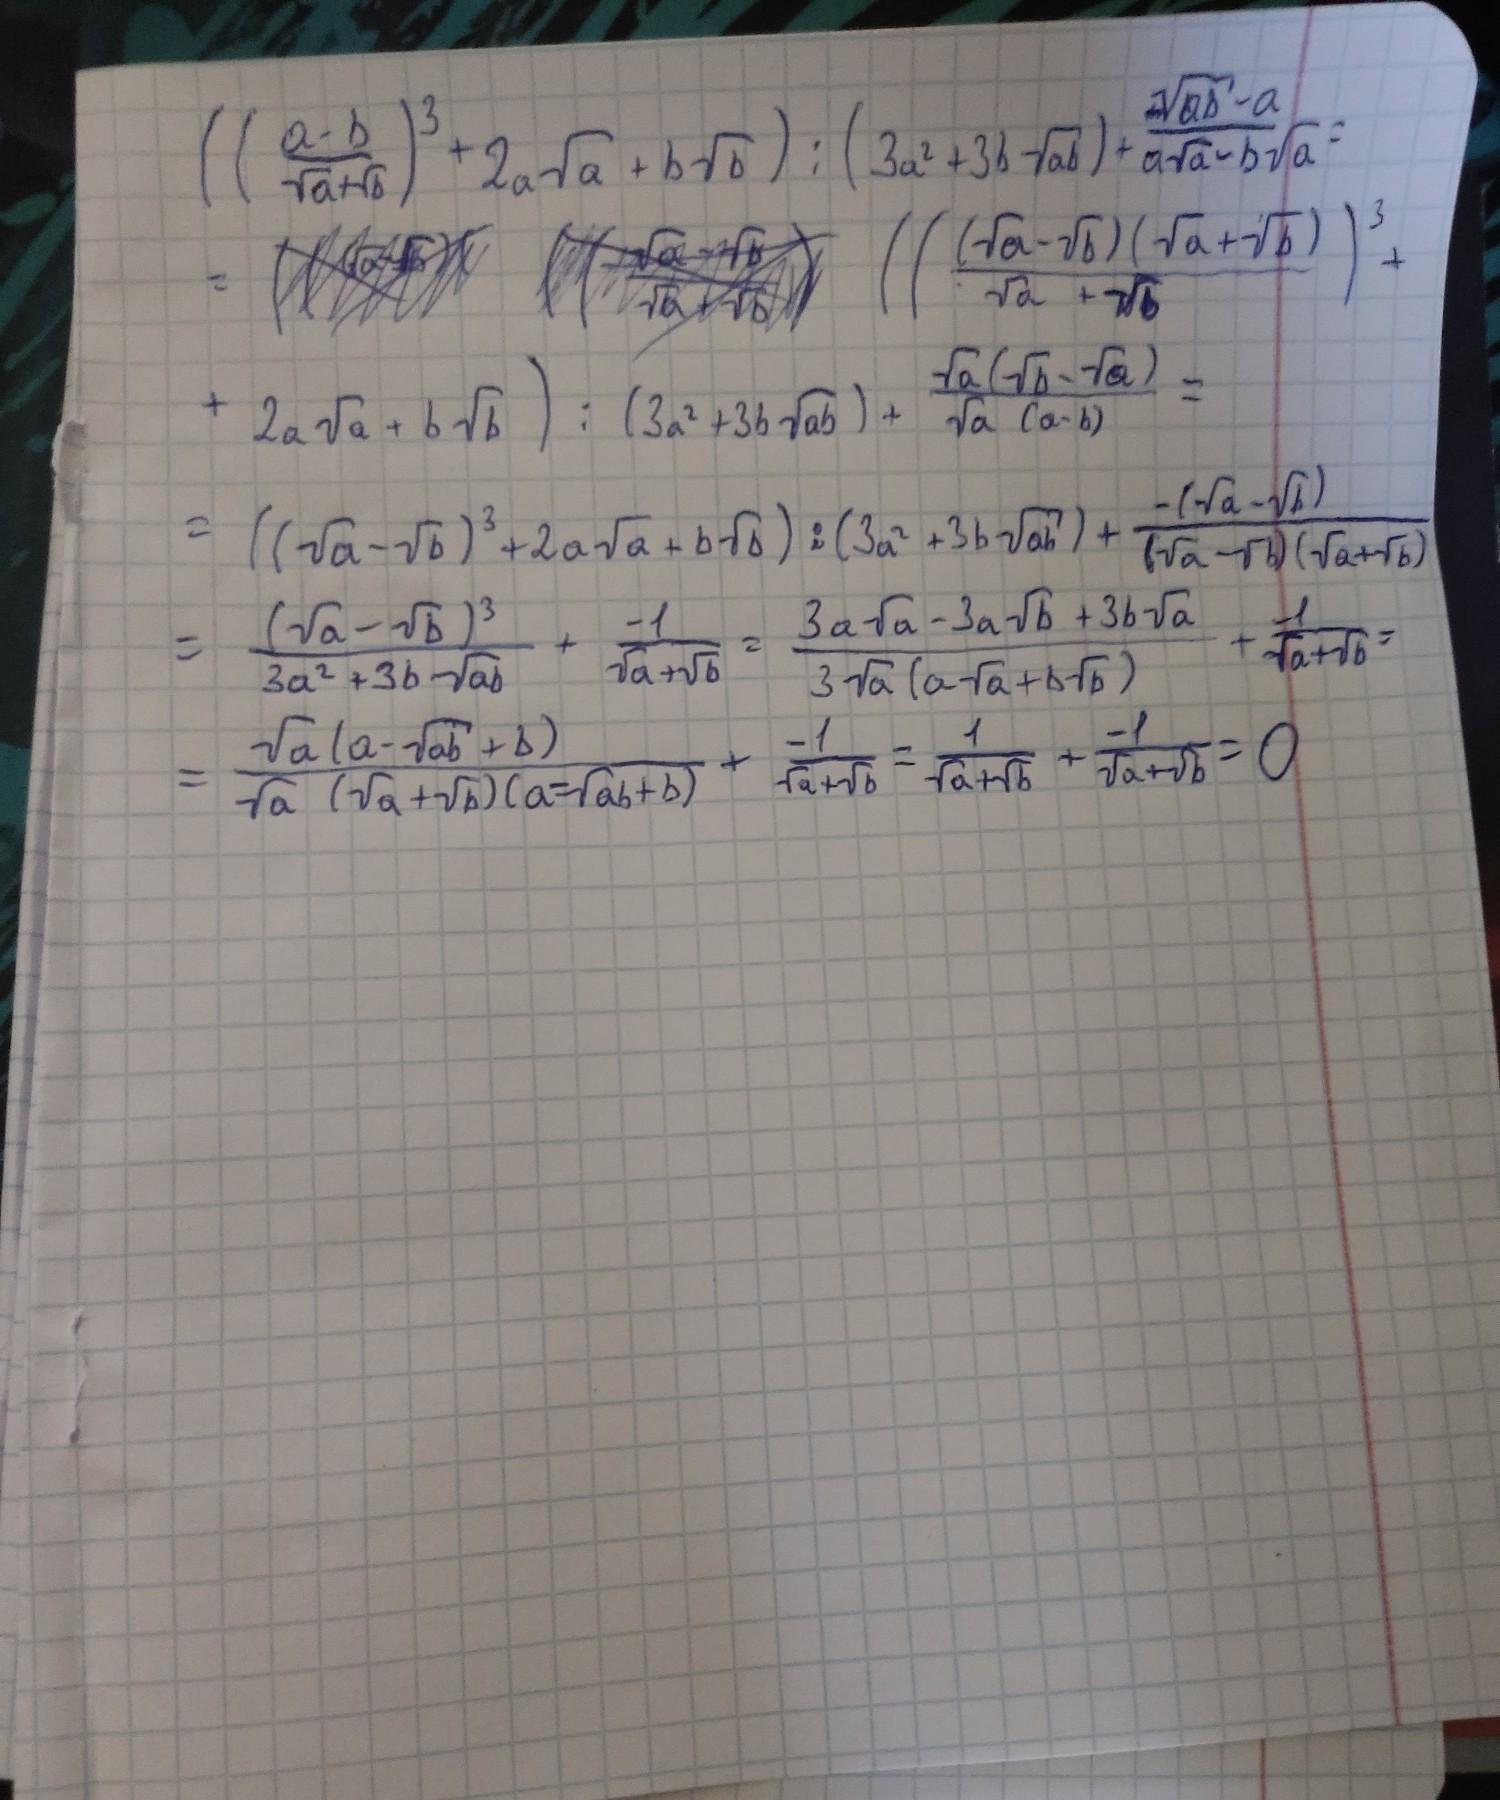 ((a-b/√a+√b)³ + 2a√a + b√b) : (3a² + 3b√ab) + √ab - a/a√a - b√a =
= (((√a - √b)(√a + √b)/√a + √b)³ +
+ 2a√a + b√b) : (3a² + 3b√ab) + √a(√b - √a)/√a (a-b) =
= ((√a - √b)³ + 2a√a + b√b) : (3a² + 3b√ab) + -(√a - √b)/(√a - √b)(√a + √b)
= (√a - √b)³/3a² + 3b√ab + -1/√a+√b = 3a√a - 3a√b + 3b√a/3√a(a√a + b√b) + -1/√a+√b =
= √a(a - √ab + b)/√a (√a + √b)(a - √ab + b) + -1/√a+√b = 1/√a+√b + -1/√a+√b = 0